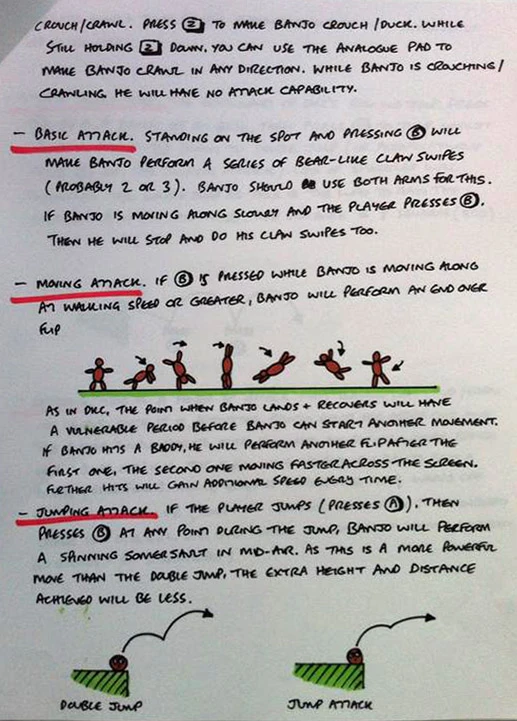 CROUCH/CRAWL. PRESS Z TO MAKE BANJO CROUCH / DUCK. WHILE
STILL HOLDING Z DOWN. YOU CAN USE THE ANALOGUE PAD TO
MAKE BANJO CRAWL IN ANY DIRECTION. WHILE BANJO IS CROUCHING/
CRAWLING. HE WILL HAVE NO ATTACK CAPABILITY.
- BASIC ATTACK. STANDING ON THE SPOT AND PRESSING B WILL
MAKE BANJO PERFORM A SERIES OF BEAR-LIKE CLAW SWIPES
(PROBABLY 2 OR 3). BANJO SHOULD USE BOTH ARMS FOR THIS.
IF BANJO IS MOVING ALONG SLOWLY AND THE PLAYER PRESSES B.
THEN HE WILL STOP AND DO HIS CLAW SWIPES TOO.
- MOVING ATTACK. IF B IS PRESSED WHILE BANJO IS MOVING ALONG
AT WALKING SPEED OR GREATER, BANJO WILL PERFORM AN END OVER
FLIP
AS IN DKC, THE POINT WHEN BANJO LANDS + RECOVERS WILL HAVE
A VULNERABLE PERIOD BEFORE BANJO CAN START ANOTHER MOVEMENT.
IF BANJO HITS A BADDY, HE WILL PERFORM ANOTHER FLIP AFTER THE
FIRST ONE, THE SECOND ONE MOVING FASTER ACROSS THE SCREEN.
FURTHER HITS WILL GAIN ADDITIONAL SPEED EVERY TIME.
- JUMPING ATTACK. IF THE PLAYER JUMPS (PRESSES A), THEN
PRESSES B AT ANY POINT DURING THE JUMP, BANJO WILL PERFORM
A SPINNING SOMERSAULT IN MID-AIR. AS THIS IS A MORE POWERFUL
MOVE THAN THE DOUBLE JUMP, THE EXTRA HEIGHT AND DISTANCE
ACHIEVED WILL BE LESS.
DOUBLE JUMP
JUMP ATTACK